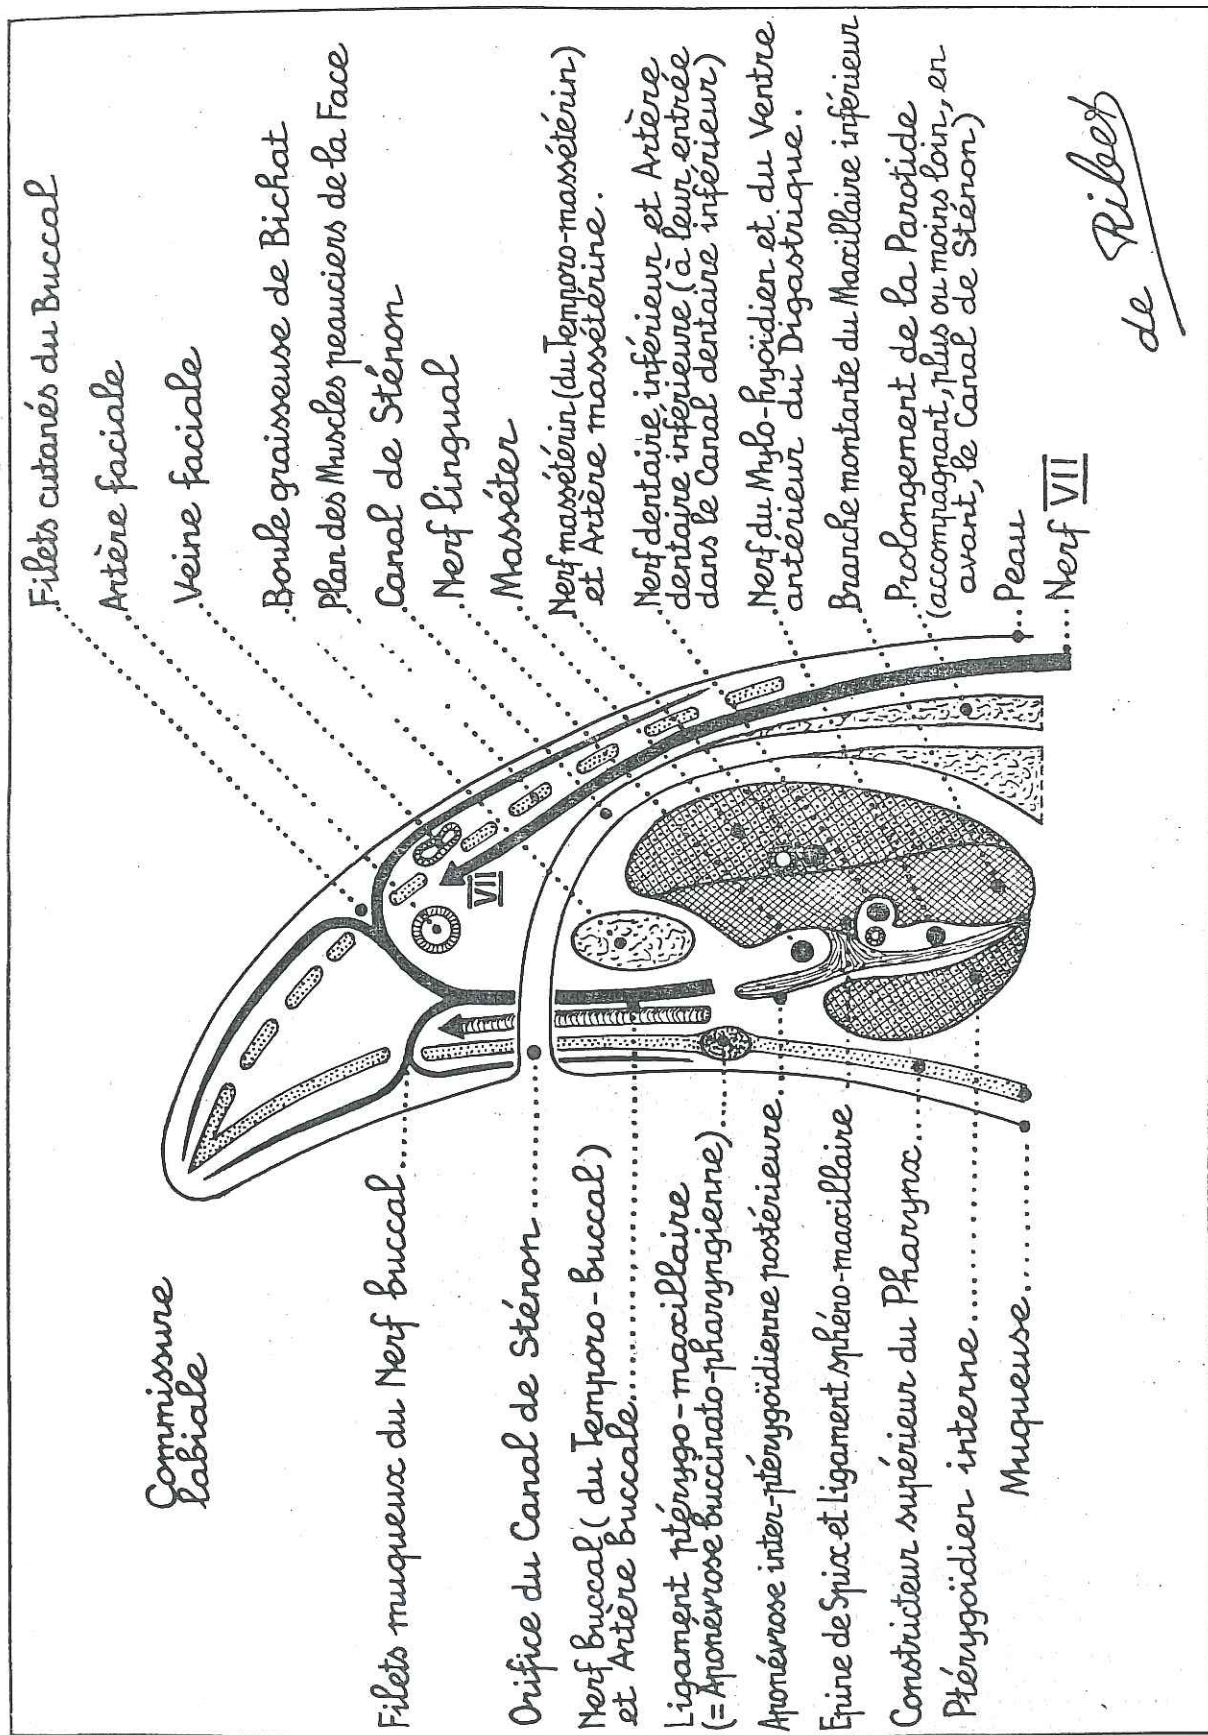 Commissure
labiale
Filets muqueux du Nerf buccal
Orifice du Canal de Sténon
Nerf buccal (du Temporo-buccal)
et Artère buccale
Ligament ptérygo-maxillaire
(=Aponévrose buccinato-pharyngienne)
Aponévrose inter-ptérygoïdienne postérieure
Epine de Spix et ligament sphéno-maxillaire
Constricteur supérieur du Pharynx
Ptérygoïdien interne
Muqueuse
VII
Filets cutanés du Buccal
Artère faciale
Veine faciale
Boule graisseuse de Bichat
Plan des Muscles peauciers de la Face
Canal de Sténon
Nerf lingual
Masséter
Nerf massétérin (du Temporo-massétérin)
et Artère massétérine.
Nerf dentaire inférieur et Artère
dentaire inférieure (à leur entrée
dans le Canal dentaire inférieur)
Nerf du Mylo-hyoïdien et du Ventre
antérieur du Digastrique.
Branche montante du Maxillaire inférieur
Prolongement de la Parotide
(accompagnant, plus ou moins loin, en
avant, le Canal de Sténon)
Peau
Nerf VII
de Ribet